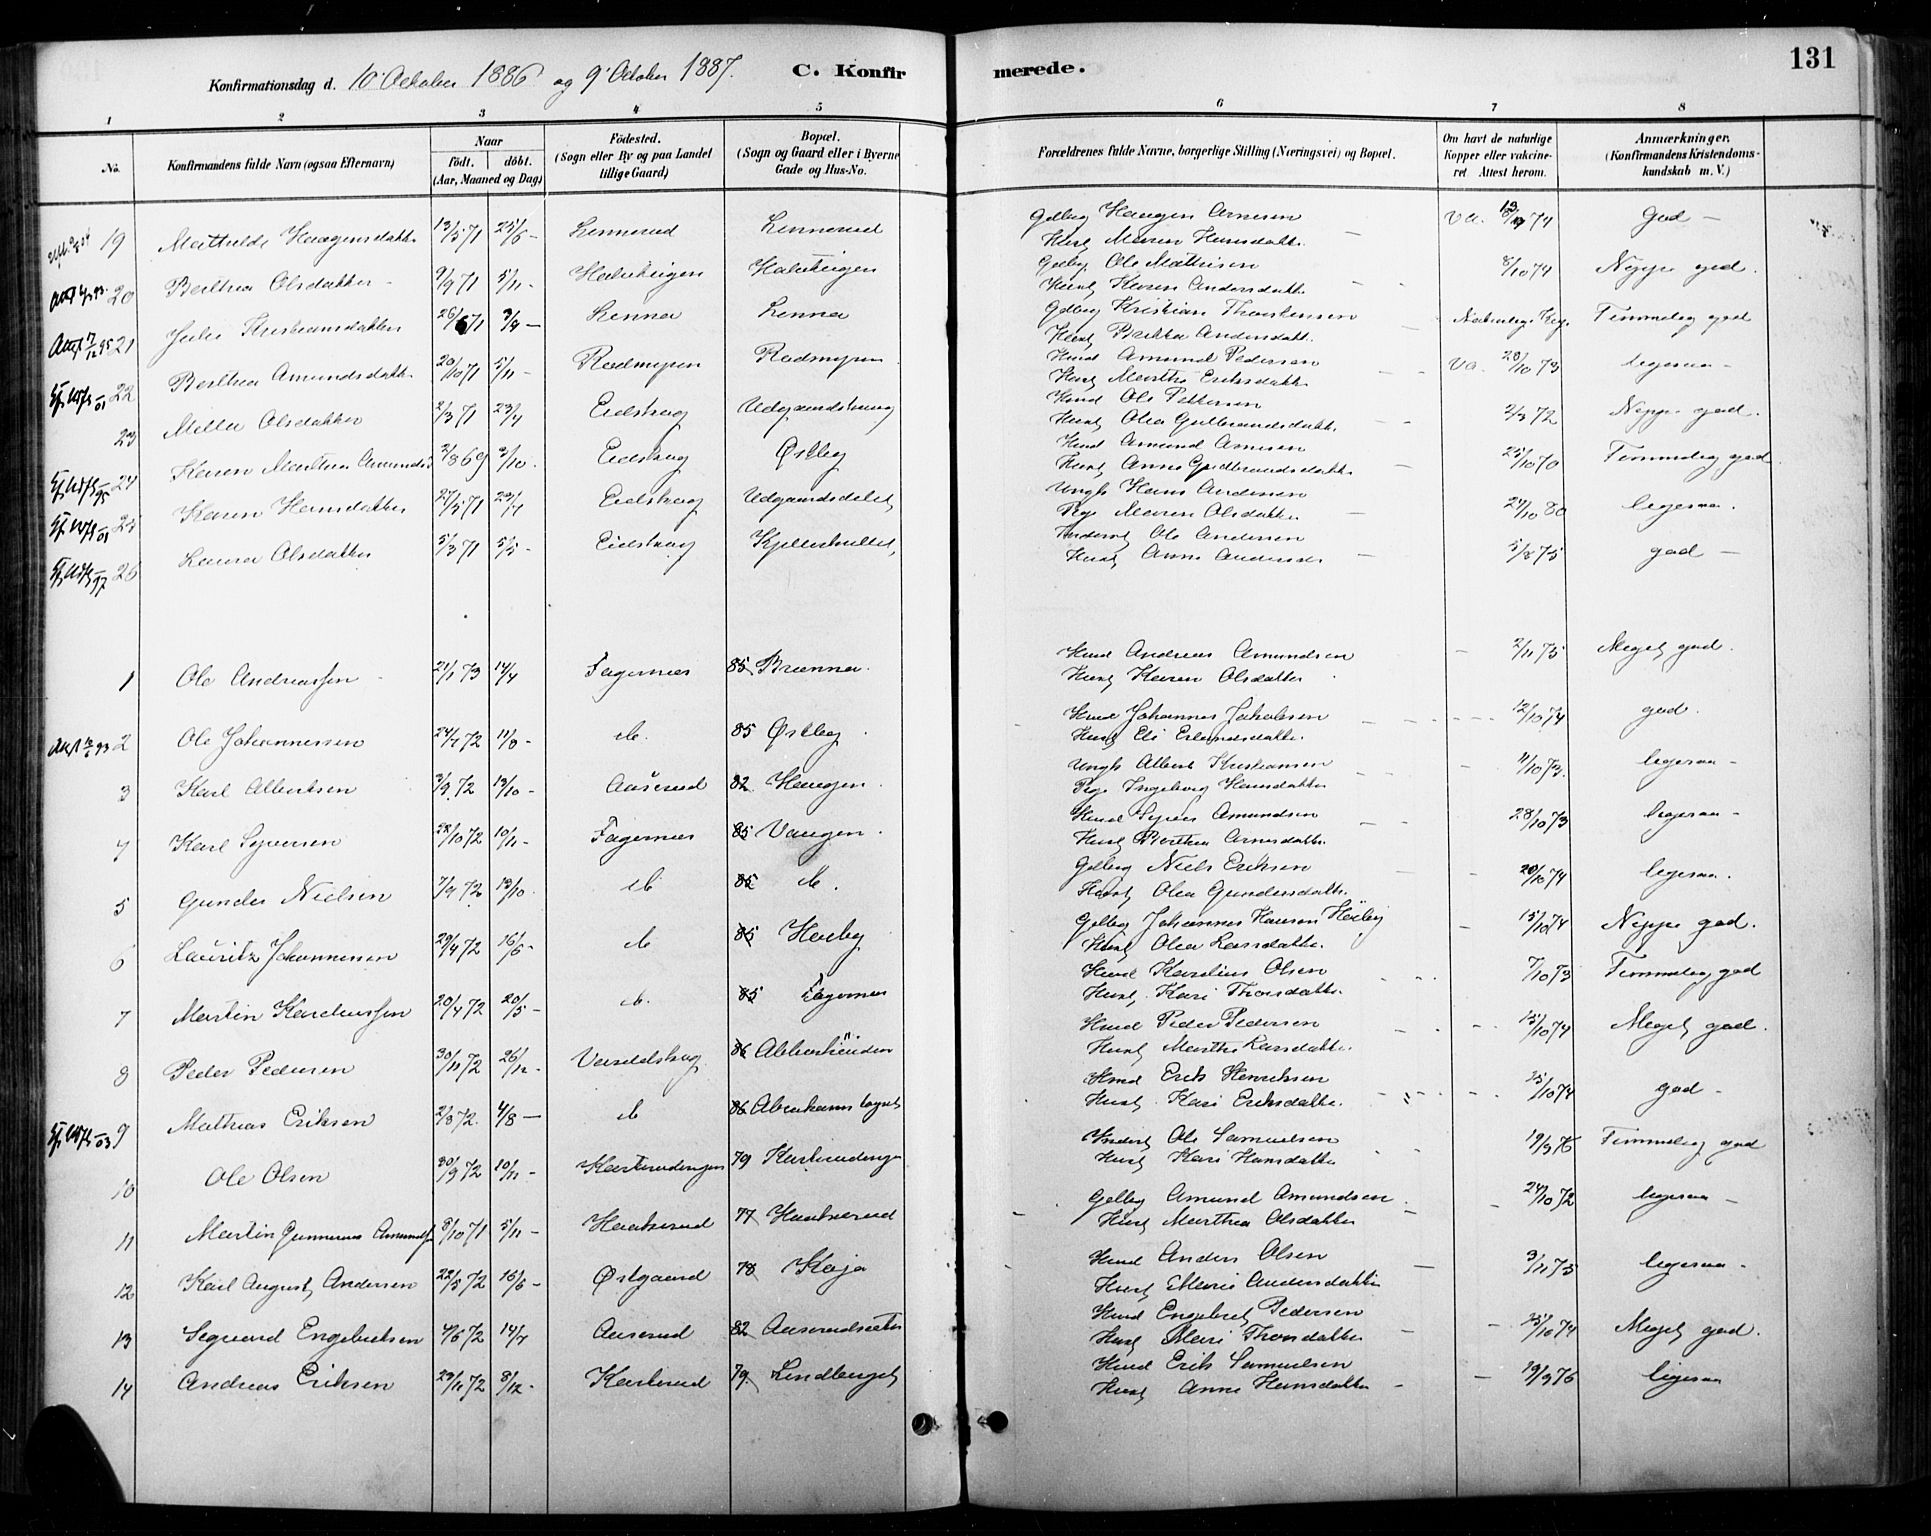 131
Konfirmationsdag d. 10' October 1886 og 9' October 1887. C. Konfirmerede.
1 2 3 4 5 6 7 8
No. Konfirmandens fulde Navn (ogsaa Efternavn) Naar födt. döbt. (Aar, Maaned og Dag) Födested. (Sogn eller By og paa Landet tillige Gaard) Bopæl. (Sogn og Gaard eller i Byerne Gade og Hus-No. Forældrenes fulde Navne, borgerlige Stilling (Næringsvei) og Bopæl. Om havt de naturlige Kopper eller vakcineret Attest herom. Anmærkninger, (Konfirmandens Kristendomskundskab m. V.)
19 Mathilde Haagensdatter 13/5 71 25/6 - Lennerud Lennerud Gelbrg Haagen Arnesen Hust Maren Hansdatter va. 74 God -
20 Berthea Olsdatter 9/9 71 5/11 - Halvteigen Halvteigen Gelbg. Ole Mathisen Hust Karen Andersdatter 8/10 74 Neppe god.
21 Julie Kristiansdatter 26/6 71 3/9 - Lenna Lenna Gelbrg Kristian Thorstensen Hust Berthe Andersdatt. Temmelig god
22 Berthea Amundsdatt. 20/10 71 5/11 - Rødmyren Rødmyren Husmd Amund Pedersen Hust Marthe Eriksdatter va. 28/10 73 ligesaa -
23 Millea Olsdatter 2/3 71 23/4 Eidskog Udgaardshaug Husmd Ole Pettersen Hust Olea Gulbrandsdatt. 2/3 72 Neppe god.
24 Karen Marthea Amundsd 2/8 69 3/10. Eidskog Østby Husmd Amund Arnesen Hust Anne Guldbrandsdatter 25/10 70 Temmelig god
25 Karen Hansdatter 27/5 71 Eidskog Udgaardsdelet Ungk Hans Andersen Pige Maren Olsdatter 24/10 80 ligesaa.
26 Laura Olsdatter 5/3 71 5/5 - Eidskog Kjelleshultet, Inderst Ole Andersen Hust Anne Andersd. 5/8 75 god -
1 Ole Andreassen 21/1 73 14/4 Fagernes 85 Brænna. Husmd Andreas Amundsen Hust Karen Olsdatter 2/11 75 Meget god.
2 Ole Johannessen 24/7 72 11/8 - do. 85 Østby. Husmd Johannes Jakobsen Hust Eli Erlandsdatter. 12/10 74 god.
3 Karl Albertsen 3/9 72 13/10 - Aaserud 82 Haugen. Ungk Albert Kristiansen Pige Ingeborg Hansdatter 11/10 73. ligesaa -
4 Karl Syversen 28/10 72 10/11 - Fagernes 85 Vangen. Husmd Syver Amundsen Hust Berthea Arnesdatter. 28/10 73 ligesaa -
5 Gunder Nielsen 7/9 72 13/10. do 85 do. Gelbrg Niels Eriksen Hust Olea Gundersdatter 20/10 74 ligesaa.
6 Lauritz Johannessen 29/4 72 16/6 - do 85 Høiby Gelbrg Johannes Hansen Høiby Hust Olea Larsdatter. 15/10 74 Neppe god.
7 Martin Karelinssen 20/4 72 20/5 - do. 85 Fagernes Husmd Karelius Olsen Hust Kari Thorsdatter. 7/10 73 Temmelig god
8 Peder Pedersen 30/11 72 26/12 - Varaldskog 86 Abborhøiden Husmd Peder Pedersen Hust Marthe Larsdatter. 15/10 74 Meget god.
9 Mathias Eriksen 2/8 72. 4/8 - do 86 Abrahamstorpet Husmd Erik Henriksen Hust. Kari Eriksdatter. 25/10 74 god -
10 Ole Olsen 30/9 72 10/11 - Kasterudengen 79 Kasterudengen Inderst Ole Samuelsen Hust Kari Hansdatter 19/9 76 Temmelig god
11 Martin Gunnerius Amundsen 8/10 71 5/11 - Haakerud 77 Haakerud Gelbrg Amund Amundsen Hust Marthea Olsdatter 24/10 72 ligesaa -
12 Karl August Andersen 22/5 72 16/6 - Østgaard 78 Koja Husmd Anders Olsen Hust Marie Andersdatter 3/11 75 ligesaa -
13 Segvard Engebretsen 4/6 72 14/7 Aaserud 82 Aaserudsæter Husmd Engebret Pedersen Hust Mari Thorsdatter 25/10 74 Meget god.
14 Andreas Eriksen 29/11 72 8/12 - Kasterud 79. Lindberget Husmd Erik Samuelsen Hust Anne Hansdatter 19/9 76 ligesaa